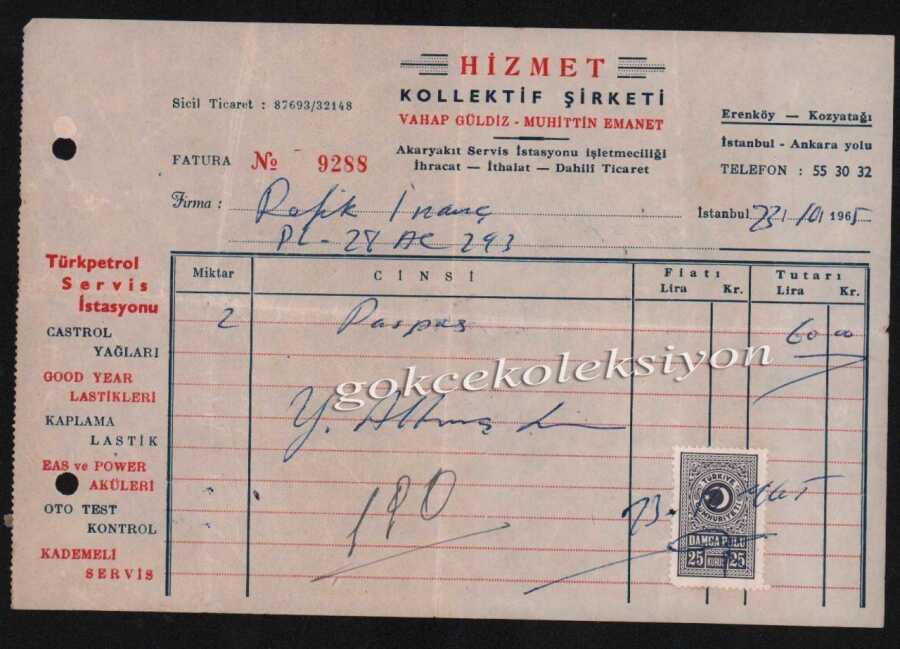 HİZMET
KOLLEKTİF ŞİRKETİ
VAHAP GÜLDİZ - MUHİTTİN EMANET
Akaryakıt Servis İstasyonu işletmeciliği
İhracat — İthalat — Dahili Ticaret
Sicil Ticaret : 87693/32148
FATURA № 9288
Erenköy — Kozyatağı
İstanbul - Ankara yolu
TELEFON : 55 30 32
Firma : Refik İnanç
İstanbul 23/10/1965
PL - 28 AC 293
Türkpetrol
Servis
İstasyonu
CASTROL
YAĞLARI
GOOD YEAR
LASTİKLERİ
KAPLAMA
LASTİK
EAS ve POWER
AKÜLERİ
OTO TEST
KONTROL
KADEMELİ
SERVİS
Miktar CİNSİ Fiatı Tutarı
Lira Kr. Lira Kr.
2 Paspas 60 00
gokcekoleksiyon
Y. Altmış
190
TÜRKİYE
CUMHURİYETİ
DAMGA PULU
25 KURUŞ 25